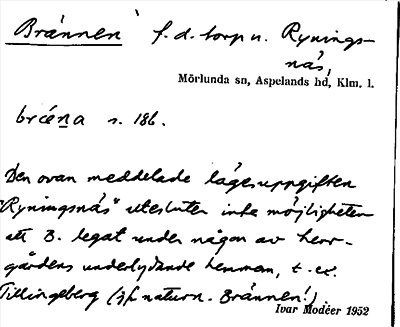 Brännen f.d. torp u. Rynings-
näs,
Mörlunda sn, Aspelands hd, Klm. l.
bréna s. 186.
Den ovan meddelade lägesuppgiften
"Ryningsnäs" utesluter inte möjligheten
att B. legat under någon av herr-
gårdens underlydande hemman, t. ex.
Tillingeberg (jfr naturn. Brännen!).
Ivar Modéer 1952